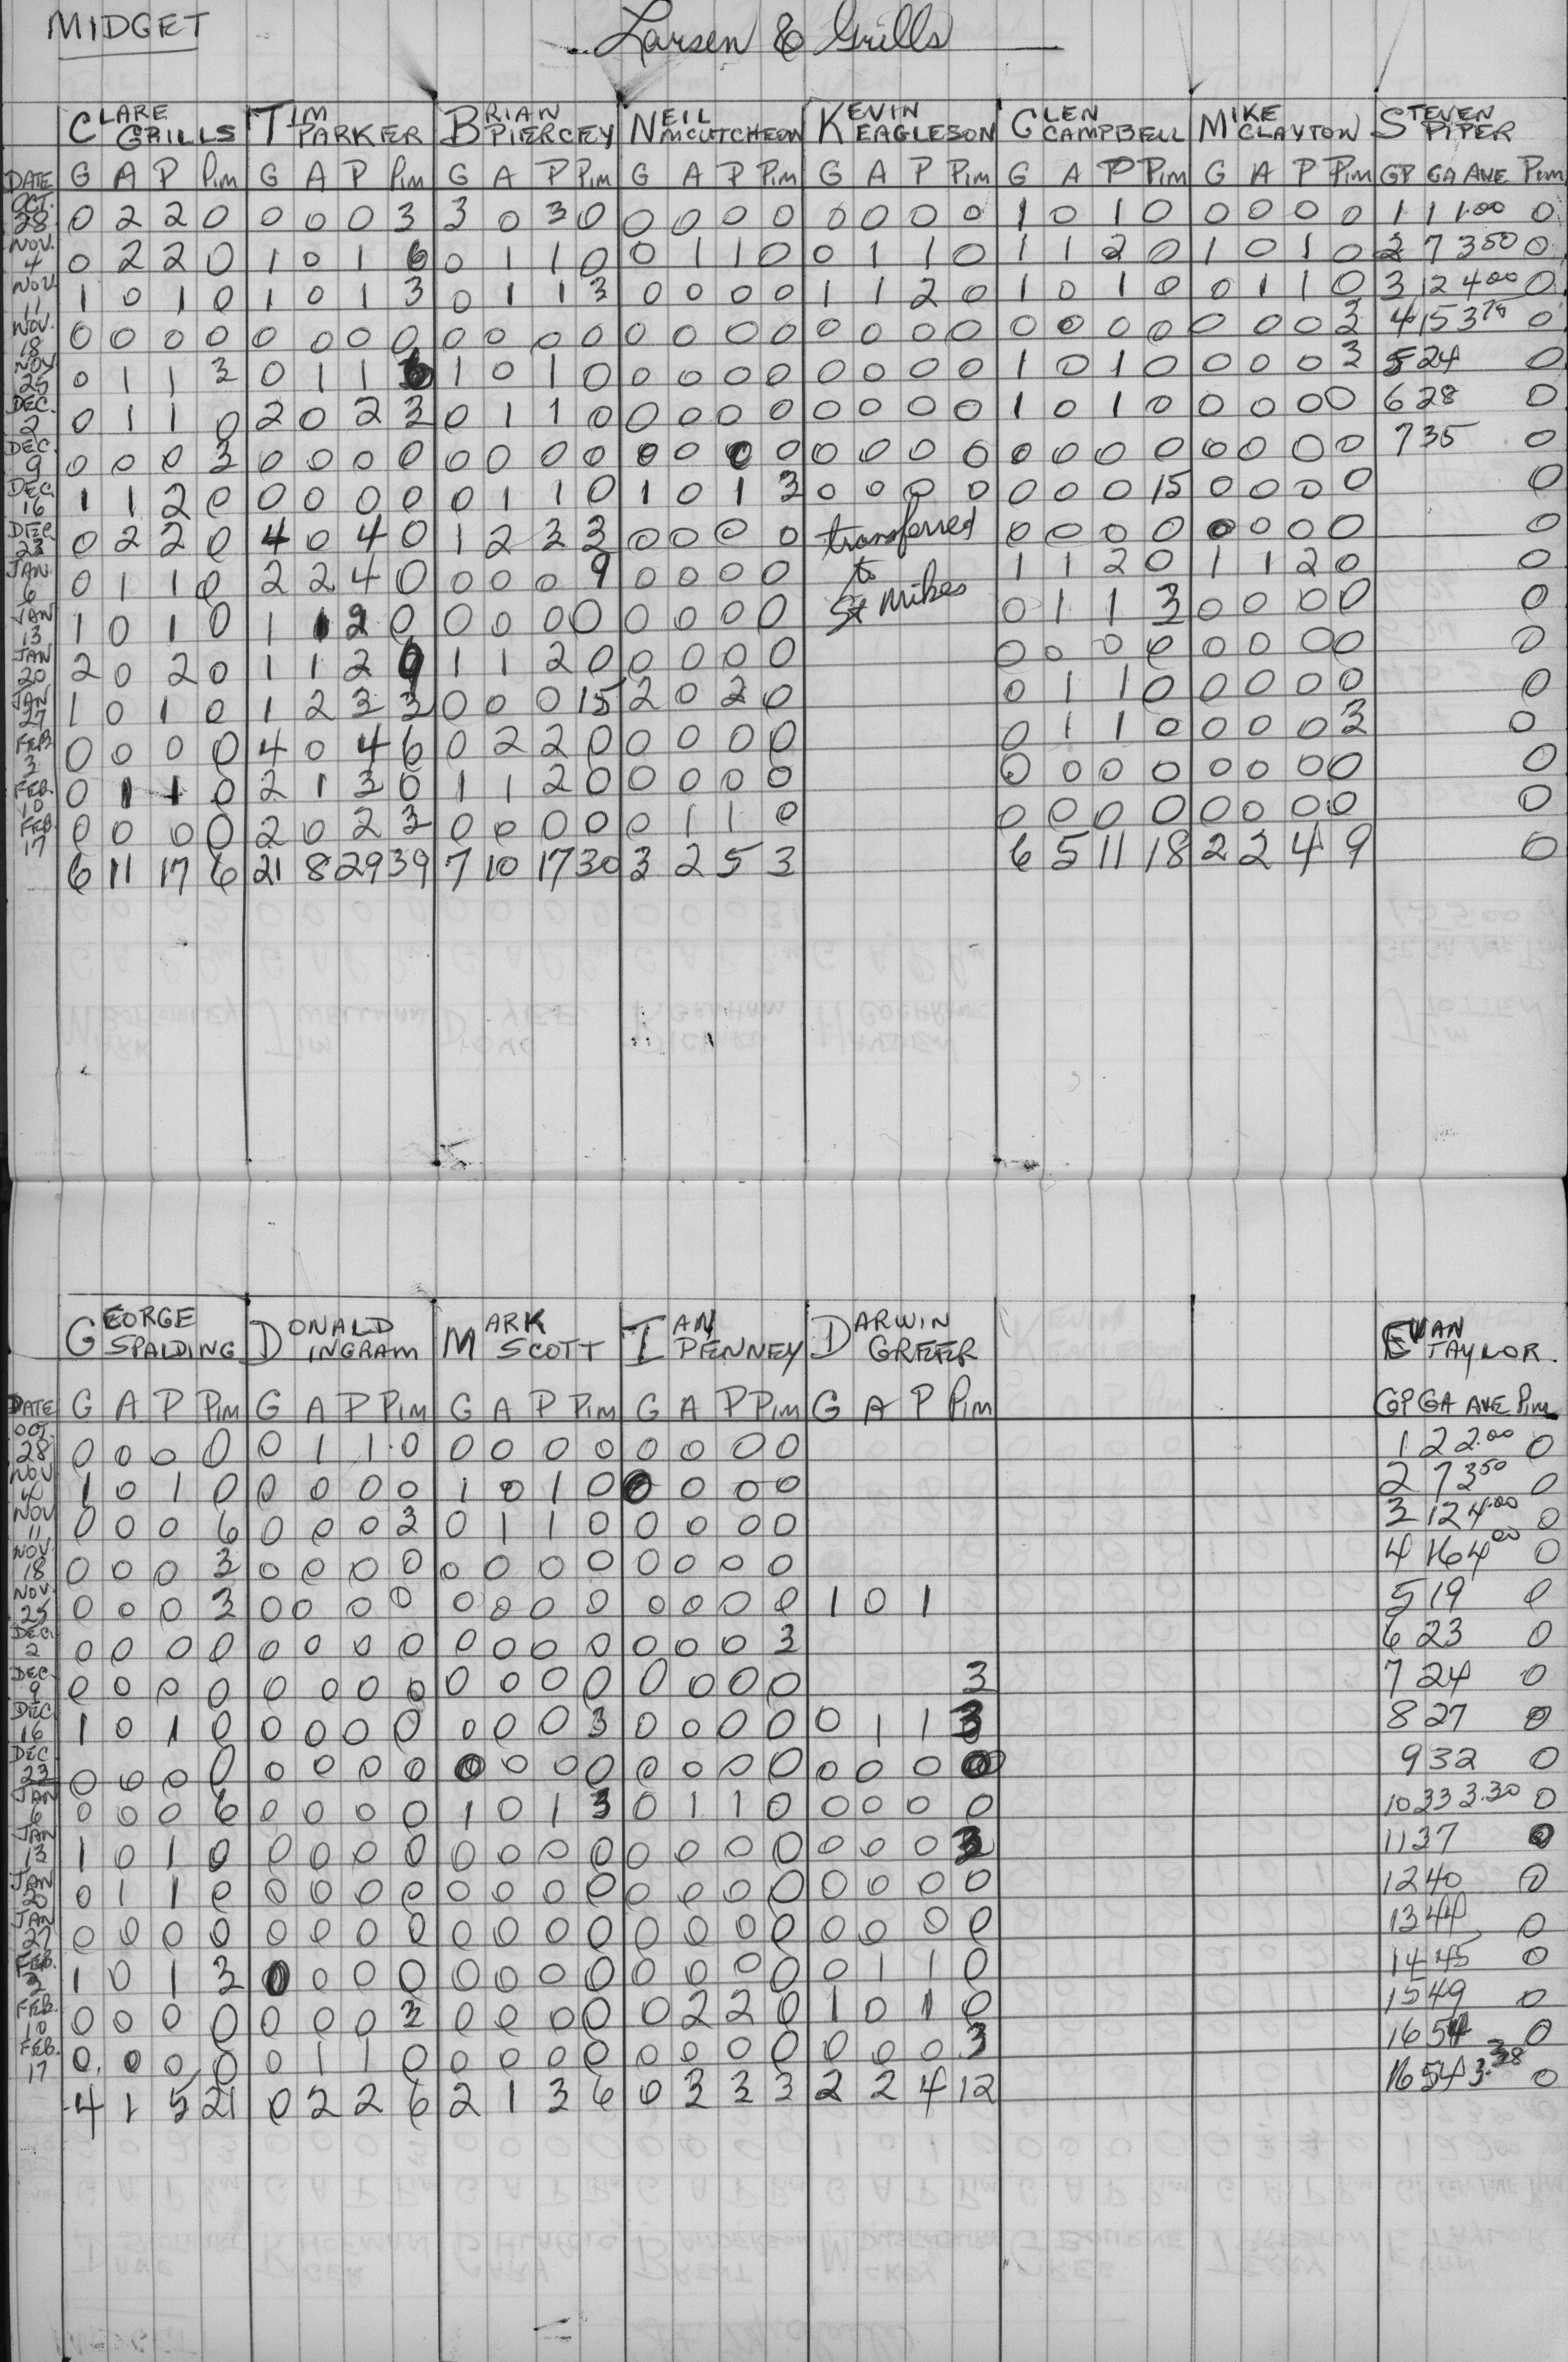 MIDGET Larsen & Grills
CLARE GRILLS TIM PARKER BRIAN PIERCEY NEIL MCCUTCHEON KEVIN EAGLESON GLEN CAMPBELL MIKE CLAYTON STEVEN PIPER
DATE G A P Pim G A P Pim G A P Pim G A P Pim G A P Pim G A P Pim G A P Pim GP GA AVE Pim
OCT. 28 0 2 2 0 0 0 0 3 3 0 3 0 0 0 0 0 0 0 0 0 1 0 1 0 0 0 0 0 1 1 1.00 0
NOV. 4 0 2 2 0 1 0 1 6 0 1 1 0 0 1 1 0 0 1 1 0 1 1 2 0 1 0 1 0 2 7 3.50 0
NOV. 11 1 0 1 0 1 0 1 3 0 1 1 3 0 0 0 0 1 1 2 0 1 0 1 0 0 1 1 0 3 12 4.00 0
NOV. 18 0 0 0 0 0 0 0 0 0 0 0 0 0 0 0 0 0 0 0 0 0 0 0 0 0 0 0 3 4 15 3.75 0
NOV 25 0 1 1 3 0 1 1 1 0 1 0 0 0 0 0 0 0 0 0 1 0 1 0 0 0 0 3 5 24 0
DEC. 2 0 1 1 0 2 0 2 3 0 1 1 0 0 0 0 0 0 0 0 0 1 0 1 0 0 0 0 0 6 28 0
DEC. 9 0 0 0 3 0 0 0 0 0 0 0 0 0 0 0 0 0 0 0 0 0 0 0 0 0 0 0 0 7 35 0
DEC 16 1 1 2 0 0 0 0 0 0 1 1 0 1 0 1 3 0 0 0 0 0 0 0 15 0 0 0 0 0
DEC. 23 0 2 2 0 4 0 4 0 1 2 3 3 0 0 0 0 transferred 0 0 0 0 0 0 0 0 0
JAN. 6 0 1 1 0 2 2 4 0 0 0 0 9 0 0 0 0 to 1 1 2 0 1 1 2 0 0
JAN 13 1 0 1 0 1 1 2 0 0 0 0 0 0 0 0 0 St Mikes 0 1 1 3 0 0 0 0 0
JAN 20 2 0 2 0 1 1 2 9 1 1 2 0 0 0 0 0 0 0 0 0 0 0 0 0 0
JAN 27 1 0 1 0 1 2 3 3 0 0 0 15 2 0 2 0 0 1 1 0 0 0 0 0 0
FEB 3 0 0 0 0 4 0 4 6 0 2 2 0 0 0 0 0 0 1 1 0 0 0 0 3 0
FEB. 10 0 1 1 0 2 1 3 0 1 1 2 0 0 0 0 0 0 0 0 0 0 0 0 0 0
FEB. 17 0 0 0 0 2 0 2 3 0 0 0 0 0 1 1 0 0 0 0 0 0 0 0 0 0
6 11 17 6 21 8 29 39 7 10 17 30 3 2 5 3 6 5 11 18 2 2 4 9 0
GEORGE SPALDING DONALD INGRAM MARK SCOTT IAN PENNEY DARWIN GREER EVAN TAYLOR.
DATE G A P Pim G A P Pim G A P Pim G A P Pim G A P Pim GP GA AVE Pim
OCT. 28 0 0 0 0 0 1 1 0 0 0 0 0 0 0 0 0 1 2 2.00 0
NOV 4 1 0 1 0 0 0 0 0 1 0 1 0 0 0 0 0 2 7 3.50 0
NOV 11 0 0 0 6 0 0 0 3 0 1 1 0 0 0 0 0 3 12 4.00 0
NOV. 18 0 0 0 3 0 0 0 0 0 0 0 0 0 0 0 0 4 16 4.00 0
NOV. 25 0 0 0 3 0 0 0 0 0 0 0 0 0 0 0 0 1 0 1 5 19 0
DEC. 2 0 0 0 0 0 0 0 0 0 0 0 0 0 0 0 3 6 23 0
DEC. 9 0 0 0 0 0 0 0 0 0 0 0 0 0 0 0 0 3 7 24 0
DEC 16 1 0 1 0 0 0 0 0 0 0 0 3 0 0 0 0 0 1 1 3 8 27 0
DEC. 23 0 0 0 0 0 0 0 0 0 0 0 0 0 0 0 0 0 0 0 0 9 32 0
JAN 6 0 0 0 6 0 0 0 0 1 0 1 3 0 1 1 0 0 0 0 0 10 33 3.30 0
JAN 13 1 0 1 0 0 0 0 0 0 0 0 0 0 0 0 0 0 0 0 3 11 37 0
JAN 20 0 1 1 0 0 0 0 0 0 0 0 0 0 0 0 0 0 0 0 0 12 40 0
JAN 27 0 0 0 0 0 0 0 0 0 0 0 0 0 0 0 0 0 0 0 0 13 44 0
FEB. 3 1 0 1 3 0 0 0 0 0 0 0 0 0 0 0 0 0 1 1 0 14 45 0
FEB. 10 0 0 0 0 0 0 0 3 0 0 0 0 0 2 2 0 1 0 1 0 15 49 0
FEB. 17 0 0 0 0 0 1 1 0 0 0 0 0 0 0 0 0 0 0 0 3 16 54 0
4 1 5 21 0 2 2 6 2 1 3 6 0 3 3 3 2 2 4 12 16 54 3.38 0